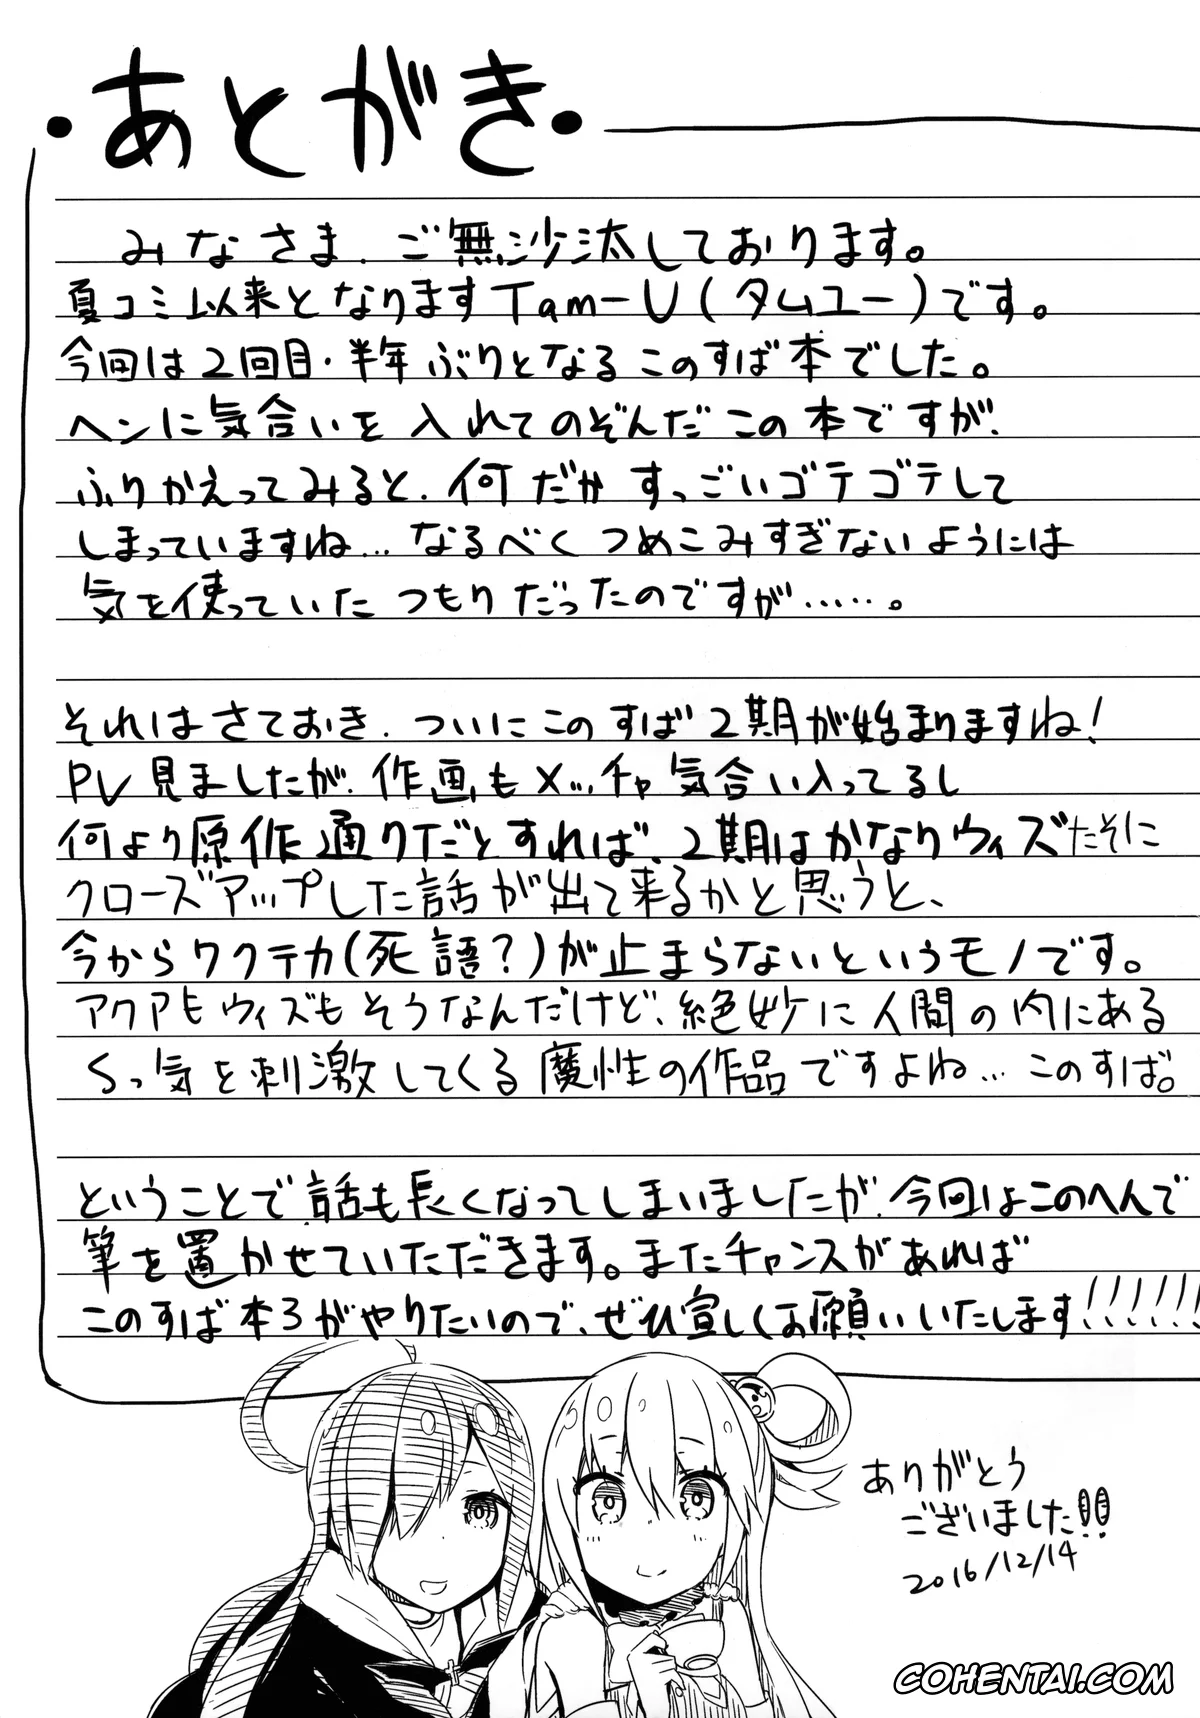 ・あとがき・
みなさま、ご無沙汰しております。
夏コミ以来となりますTam-U(タムユー)です。
今回は2回目・半年ぶりとなるこのすば本でした。
ヘンに気合いを入れてのぞんだこの本ですが、
ふりかえってみると、何だかすっごいゴテゴテして
しまっていますね…なるべくつめこみすぎないようには
気を使っていたつもりだったのですが……。
それはさておき、ついにこのすば2期が始まりますね!
PV見ましたが、作画もメッチャ気合い入ってるし
何より原作通りだとすれば、2期はかなりウィズたそに
クローズアップした話が出て来るかと思うと、
今からワクテカ(死語?)が止まらないというモノです。
アクアもウィズもそうなんだけど、絶妙に人間の内にある
Sっ気を刺激してくる魔性の作品ですよね…このすば。
ということで話も長くなってしまいましたが、今回はこのへんで
筆を置かせていただきます。またチャンスがあれば
このすば本3がやりたいので、ぜひ宜しくお願いいたします!!!!!!
ありがとう
ございました!!
2016/12/14
COHENTAI.COM